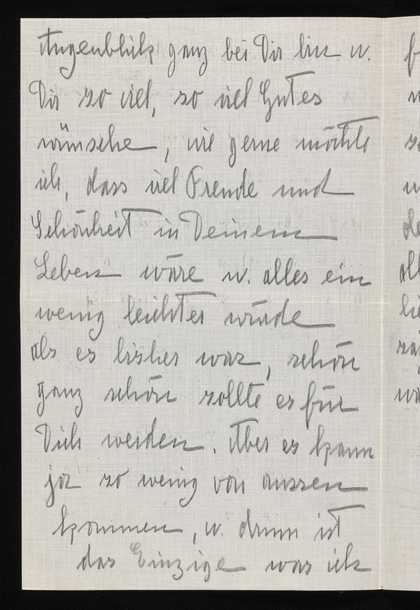 Augenblick ganz bei Dir bin u.
Dir so viel, so viel Gutes
wünsche, wie gerne möchte
ich, dass viel Freude und
Schönheit in Deinem
Leben wäre u. alles ein
wenig leichter würde
als es bisher war, schön
ganz schön sollte es für
Dich werden. Aber es kann
ja so wenig von aussen
kommen, u. drum ist
das Einzige was ich